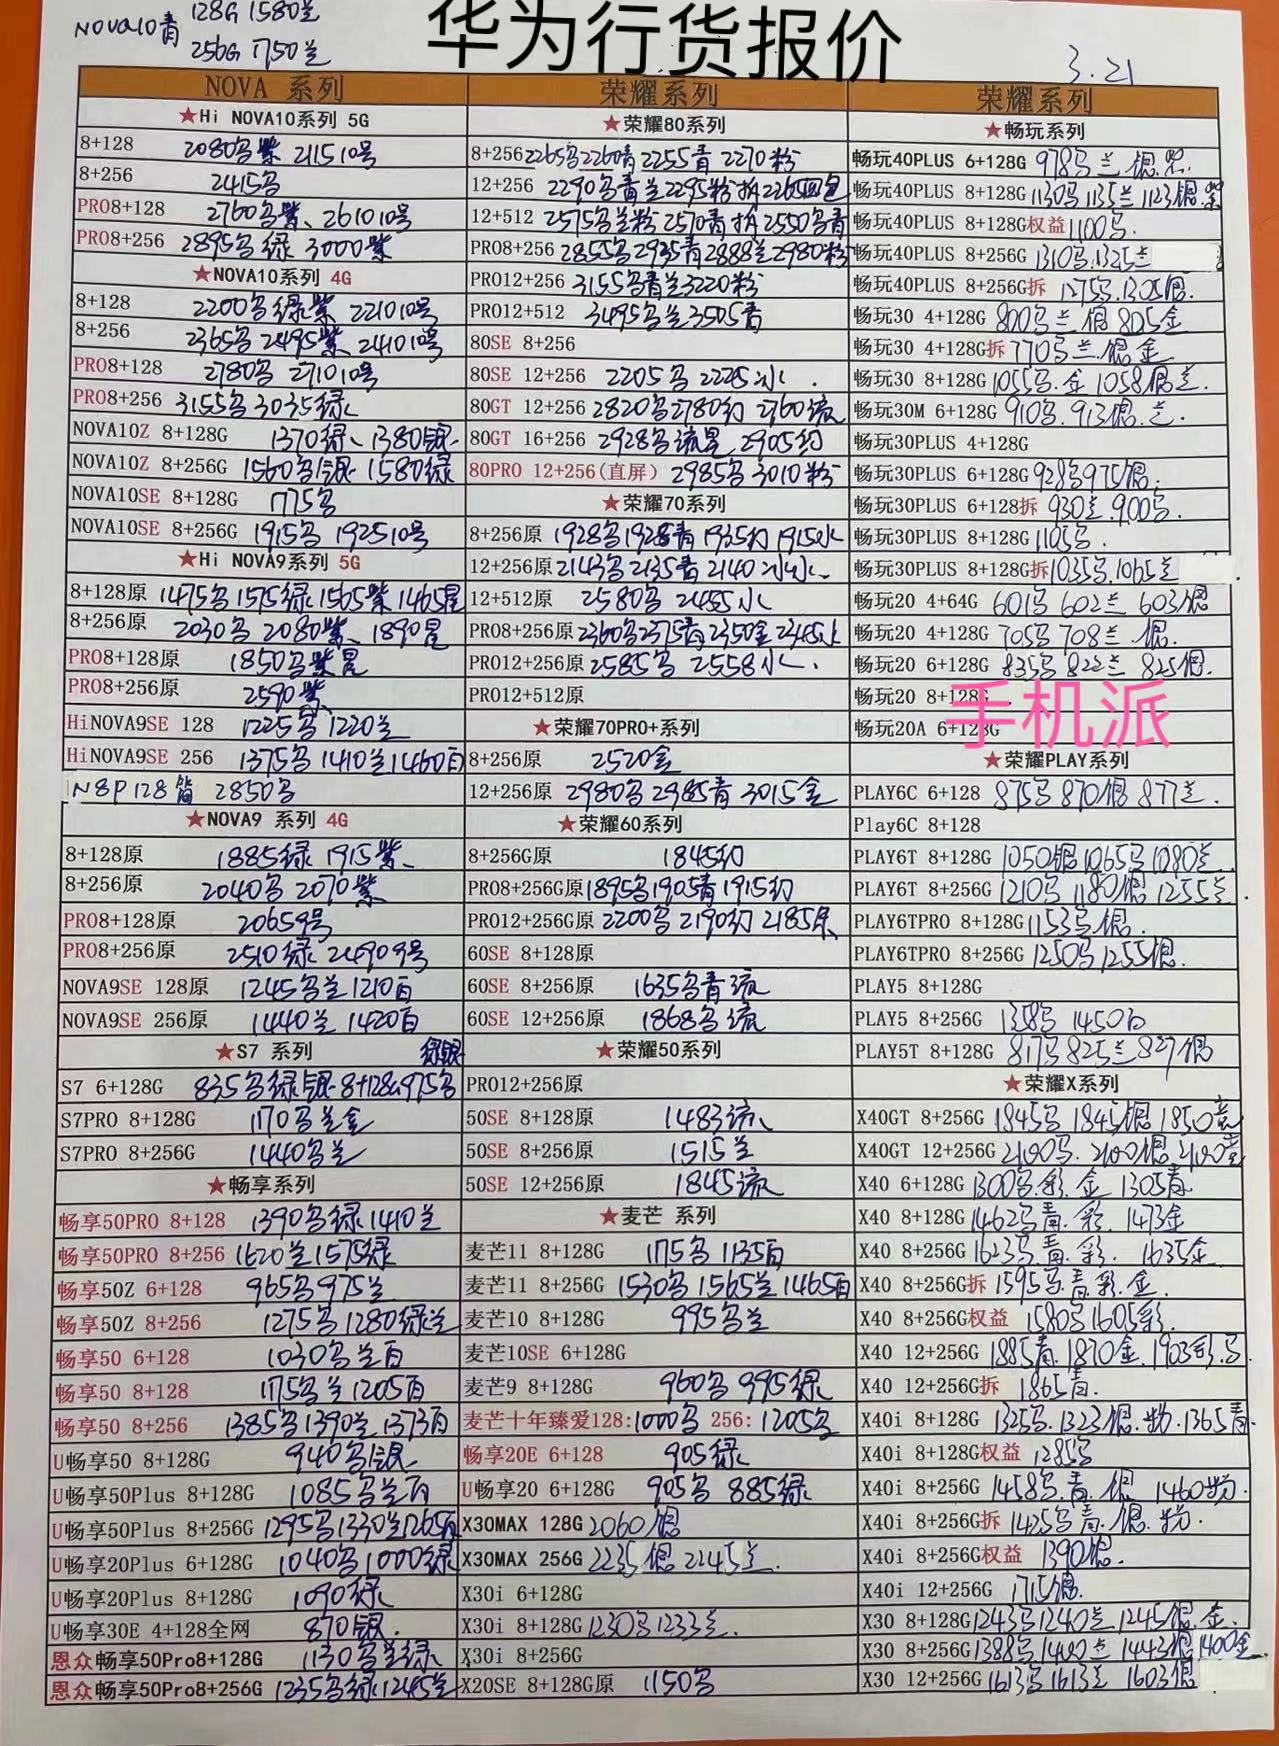 NOVA10青 128G 1580兰
256G 1750兰
华为行货报价
3.21
NOVA 系列
★Hi NOVA10系列 5G
8+128 2080鸟紫 2115 10号
8+256 2415鸟
PRO8+128 2760鸟紫、2610 10号
PRO8+256 2895鸟绿 3000紫
★NOVA10系列 4G
8+128 2200鸟绿紫 2210 10号
8+256 2365鸟 2495紫、2410 10号
PRO8+128 2780鸟 2710 10号
PRO8+256 3155鸟 3035绿
NOVA10Z 8+128G 1370绿、1380银
NOVA10Z 8+256G 1560鸟银 1580绿
NOVA10SE 8+128G 1775鸟
NOVA10SE 8+256G 1915鸟 1925 10号
★Hi NOVA9系列 5G
8+128原 1475鸟 1575绿 1565紫 1465星
8+256原 2030鸟 2080紫、1890星
PRO8+128原 1850鸟紫星
PRO8+256原 2590紫
HiNOVA9SE 128 1225鸟 1220兰
HiNOVA9SE 256 1375鸟 1410兰 1460白
N8P 128 2850鸟
★NOVA9 系列 4G
8+128原 1885绿 1915紫、
8+256原 2040鸟 2070紫
PRO8+128原 2065 9号
PRO8+256原 2510绿 2490 9号
NOVA9SE 128原 1245鸟兰 1210白
NOVA9SE 256原 1440兰 1420白
★S7 系列 绿银
S7 6+128G 835鸟绿银 8+128G 975鸟
S7PRO 8+128G 1170鸟兰金
S7PRO 8+256G 1440鸟兰
★畅享系列
畅享50PRO 8+128 1390鸟绿 1410兰
畅享50PRO 8+256 1620兰 1575绿
畅享50Z 6+128 965鸟 975兰
畅享50Z 8+256 1275鸟 1280绿兰
畅享50 6+128 1030鸟兰白
畅享50 8+128 1175鸟兰 1205白
畅享50 8+256 1385鸟 1390兰 1373白
U畅享50 8+128G 940鸟银
U畅享50Plus 8+128G 1085鸟兰白
U畅享50Plus 8+256G 1295鸟 1330兰 1265白
U畅享20Plus 6+128G 1040鸟 1000绿
U畅享20Plus 8+128G 1090绿
U畅享30E 4+128全网 870银.
恩众畅享50Pro8+128G 1130鸟兰绿
恩众畅享50Pro8+256G 1235鸟绿 1245兰
荣耀系列
★荣耀80系列
8+256 2265鸟 2260青 2255青 2270粉
12+256 2290鸟青兰 2295粉 拆2265四色
12+512 2575鸟兰粉 2570青 拆2550鸟青
PRO8+256 2855鸟 2935青 2888兰 2980粉
PRO12+256 3155鸟青兰 3220粉
PRO12+512 3495鸟兰 3505青
80SE 8+256
80SE 12+256 2205鸟 2225冰 .
80GT 12+256 2820鸟 2780幻 2760流
80GT 16+256 2928鸟流星 2905幻
80PRO 12+256(直屏) 2985鸟 3010粉
★荣耀70系列
8+256原 1928鸟 1928青 1935幻 1915冰
12+256原 2143鸟 2135青 2140冰
12+512原 2580鸟 2455冰
PRO8+256原 2360鸟 2375青 2350金 2345冰
PRO12+256原 2585鸟 2558冰.
PRO12+512原
★荣耀70PRO+系列
8+256原 2520金
12+256原 2980鸟 2985青 3015金
★荣耀60系列
8+256G原 1845幻
PRO8+256G原 1895鸟 1905青 1915幻
PRO12+256G原 2200鸟 2190幻 2185
60SE 8+128原
60SE 8+256原 1635鸟青流
60SE 12+256原 1868鸟流
★荣耀50系列
PRO12+256原
50SE 8+128原 1483流
50SE 8+256原 1515兰
50SE 12+256原 1845流
★麦芒 系列
麦芒11 8+128G 1175鸟 1135白
麦芒11 8+256G 1530鸟 1565兰 1465白
麦芒10 8+128G 995鸟兰
麦芒10SE 6+128G
麦芒9 8+128G 960鸟 995绿
麦芒十年臻爱128:1000鸟 256:1205鸟
畅享20E 6+128 905绿
U畅享20 6+128G 905鸟 885绿
X30MAX 128G 2060银
X30MAX 256G 2235银 2245兰.
X30i 6+128G
X30i 8+128G 1230鸟 1233兰.
X30i 8+256G
X20SE 8+128G原 1150鸟
荣耀系列
★畅玩系列
畅玩40PLUS 6+128G 978鸟 兰 银.
畅玩40PLUS 8+128G 1130鸟 1135兰 1123银.紫
畅玩40PLUS 8+128G权益 1100鸟.
畅玩40PLUS 8+256G 1310鸟.1325兰
畅玩40PLUS 8+256G拆 1275鸟.1305银.
畅玩30 4+128G 800鸟兰 银 805金
畅玩30 4+128G拆 770鸟兰.银 金
畅玩30 8+128G 1055鸟.金 1058银兰.
畅玩30M 6+128G 910鸟.913银.兰.
畅玩30PLUS 4+128G
畅玩30PLUS 6+128G 928鸟 975银.
畅玩30PLUS 6+128拆 930兰.900鸟.
畅玩30PLUS 8+128G 1105鸟.
畅玩30PLUS 8+128G拆 1035鸟.1065兰
畅玩20 4+64G 601鸟 602兰 603银
畅玩20 4+128G 705鸟 708兰 银.
畅玩20 6+128G 835鸟 822兰 825银.
畅玩20 8+128G
手机派
畅玩20A 6+128G
★荣耀PLAY系列
PLAY6C 6+128 875鸟 870银 877兰.
Play6C 8+128
PLAY6T 8+128G 1050银 1065鸟 1080兰
PLAY6T 8+256G 1210鸟 1180银 1255兰.
PLAY6TPRO 8+128G 1153鸟银.
PLAY6TPRO 8+256G 1250鸟 1255银.
PLAY5 8+128G
PLAY5 8+256G 1450白
PLAY5T 8+128G 817鸟 825兰 827银
★荣耀X系列
X40GT 8+256G 1845鸟 1845银 1850竞
X40GT 12+256G 2100鸟.2100银 2100竞
X40 6+128G 1300鸟.彩.金 1305青.
X40 8+128G 1462鸟青.彩. 1473金
X40 8+256G 1623鸟.青.彩. 1635金.
X40 8+256G拆 1595鸟.青.彩.金.
X40 8+256G权益 1580鸟 1605彩.
X40 12+256G 1885青.1870金.1903彩.鸟
X40 12+256G拆 1865青.
X40i 8+128G 1325鸟.1323银.粉.1365青.
X40i 8+128G权益 1285鸟
X40i 8+256G 1458鸟.青.银 1460粉.
X40i 8+256G拆 1425鸟.青.银.粉.
X40i 8+256G权益 1390银.
X40i 12+256G 1715银.
X30 8+128G 1243鸟 1240兰 1245银.金.
X30 8+256G 1388鸟 1400兰 1443银 1400金.
X30 12+256G 1613鸟 1613兰 1603银